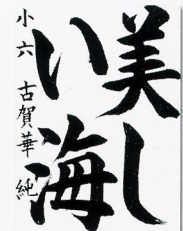 美し
い海
小六 古賀華純